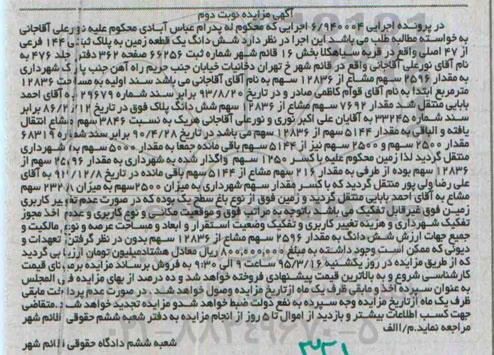 آگهی مزایده نوبت دوم
در پرونده اجرایی ۶/۹۴۰۰۰۴ اجرایی که محکوم له پدرام عباس آبادی محکوم علیه نورعلی آقاجانی
به خواسته مطالبه طلب می باشد این اجرا در نظر دارد شش دانگ یک قطعه زمین به پلاک ثبتی ۱۴۴ فرعی
از ۴۷ اصلی واقع در قریه سیاهکلا بخش ۱۶ قائم شهر شماره ثبت ۶۶۲۵۶ صفحه ۳۶۲ دفتر جلد ۴۷۶ به
نام آقای نورعلی آقاجانی واقع در قائم شهر خ تهران دخانیات خیابان جنب حریم راه آهن جنب پارک شهرداری
به مقدار ۲۵۹۶ سهم مشاع از ۱۲۸۳۶ سهم به نام آقای آقاجانی می باشد سند اولیه به مساحت ۱۲۸۳۶
مترمربع ابتدا به نام آقای قوام کاظمی صادر و در تاریخ ۹۳/۸/۲۰ برابر سند شماره ۲۹۶۷۹ به آقای احمد
بابایی منتقل شد مقدار ۷۶۹۲ سهم مشاع از ۱۲۸۳۶ سهم شش دانگ پلاک فوق در تاریخ ۸۶/۲/۱۲ برابر
سند شماره ۳۳۲۴۵ به آقایان علی اکبر نوری و نورعلی آقاجانی هریک به نسبت ۳۸۴۶ سهم مشاع انتقال
یافته و الباقی به مقدار ۵۱۴۴ سهم از ۱۲۸۳۶ سهم می باشد در تاریخ ۹۰/۴/۲۸ برابر سند شماره ۶۸۳۱۹
مقدار ۲۵۰۰ سهم و ۲۵۰۰ سهم نیز از ۵۱۴۴ سهم باقی مانده جمعا به مقدار ۵۰۰۰ سهم به شهرداری
منتقل گردید لذا زمین محکوم علیه با کسر ۱۲۵۰ سهم واگذار شده به شهرداری به مقدار ۲۵۹۶ سهم از
۱۲۸۳۶ سهم بوده از طرفی به مقدار ۲۱۶ سهم مشاع از ۵۱۴۴ سهم باقی مانده در تاریخ ۹۲/۱۲/۸ به آقای
علی رضا ولی پور منتقل گردید که با کسر مقدار سهم شهرداری به میزان ۲۵۰۰ سهم به میزان سهم
مشاع به آقای احمد بابایی منتقل گردید و زمین فوق از نوع باغ سطح یک بوده که در صورت عدم تغییر کاربری
زمین فوق غیرقابل تفکیک می باشد باتوجه به مراتب فوق و موقعیت مکانی و نوع کاربری و عدم اخذ مجوز
تفکیک شهرداری و هزینه تغییر کاربری و تفکیک وضعیت استقرار و ابعاد و مساحت عرصه و نوع مالکیت و
جمیع جهات ارزش شش دانگ به مقدار ۲۵۹۶ سهم مشاع از ۱۲۸۳۶ سهم بدون در نظر گرفتن تعهدات و
دیونی که ممکن است وجود داشته به مبلغ ۸۰۰/۰۰۰/۰۰۰ ریال معادل هشتادمیلیون تومان ارزیابی گردید
که از طریق مزایده در روز یکشنبه ۹۵/۳/۱۶ ساعت ۹ الی ۹:۳۰ به فروش برساند مزایده برمبنای قیمت
کارشناسی شروع و به بالاترین قیمت پیشنهادی فروخته خواهد شد و ده درصد از بهای مزایده فی المجلس
به عنوان سپرده اخذ و مابقی ظرف یک ماه از تاریخ مزایده وصول خواهد شد. در صورت عدم پرداخت مابقی
ظرف یک ماه از تاریخ مزایده وجه سپرده به نفع دولت ضبط خواهد شد و مزایده تجدید خواهد شد. متقاضی
جهت کسب اطلاعات بیشتر و بازدید از اموال تا ۵ روز از انجام مزایده به دفتر شعبه ششم حقوقی قائم شهر
مراجعه نماید. م/الف
شعبه ششم دادگاه حقوقی قائم شهر
۰۲۱-۸۸۳۴۹۶۷۰-۵